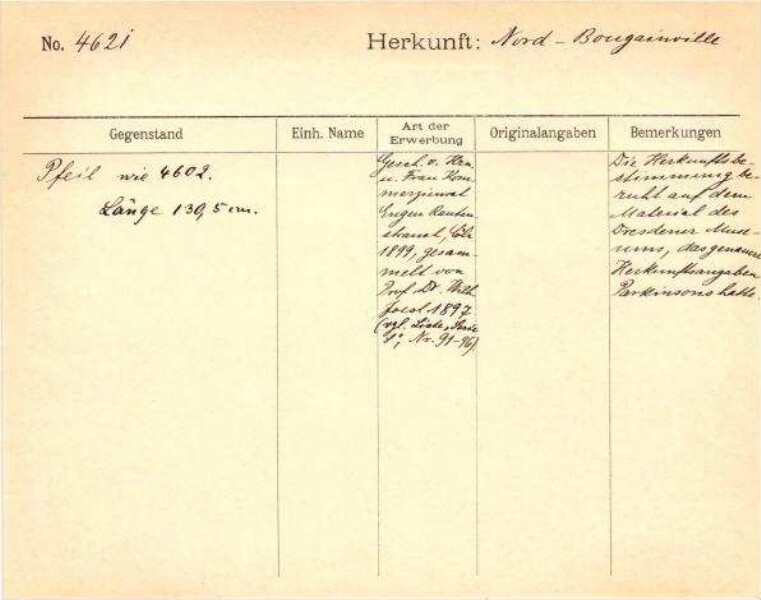 No. 4621 Herkunft: Nord - Bougainville
Gegenstand
Einh. Name
Art der
Erwerbung
Originalangaben
Bemerkungen
Pfeil wie 4602.
Länge 130,5 cm.
Gesch. v. Herrn
u. Frau Kom-
merzienrat
Eugen Rauten-
strauch, Cöln
1899, gesam-
melt von
Prof. Dr. Wilh.
Joest 1897
(vgl. Liste, Serie
Nr. 91-96)
Die Herkunftsbe-
stimmung be-
ruht auf dem
Material des
Dresdener Muse-
ums, das genauere
Herkunftsangaben
Parkinsons hatte.